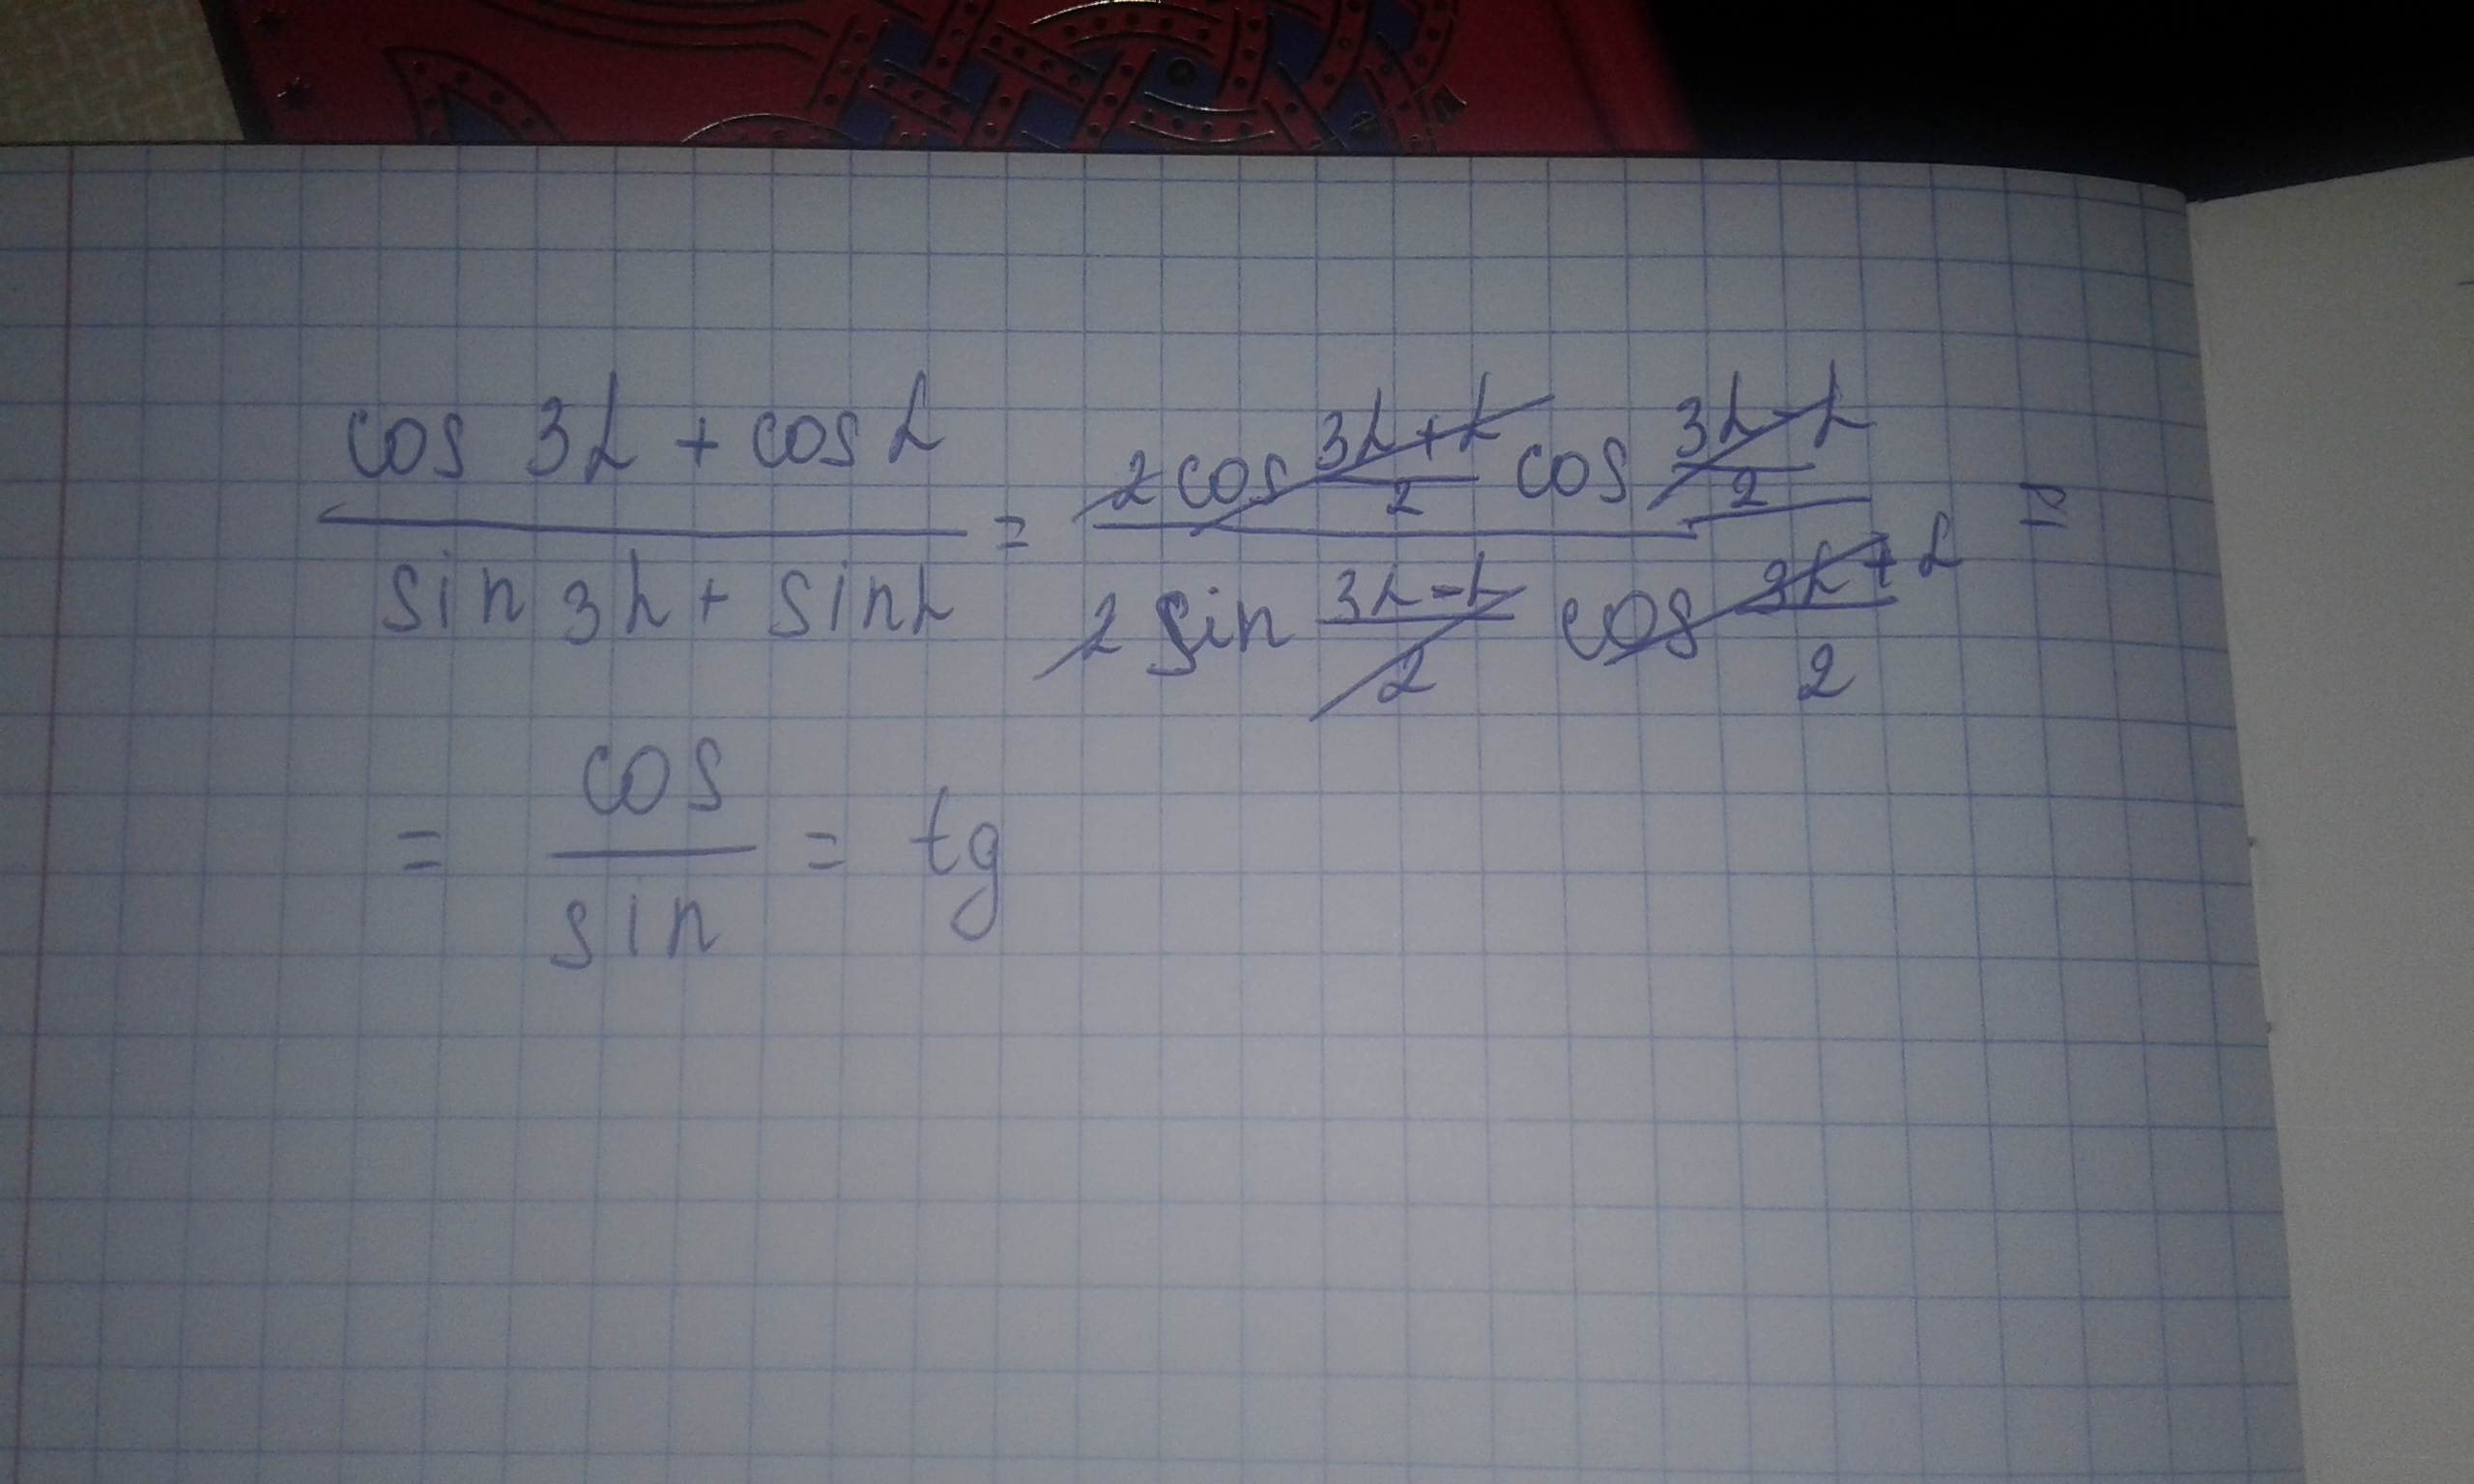 cos 3α + cos α / sin 3α + sin α = 2 cos 3α+α / 2 cos 3α-α / 2 / 2 sin 3α-α / 2 cos 3α+α / 2 =
= cos / sin = tg